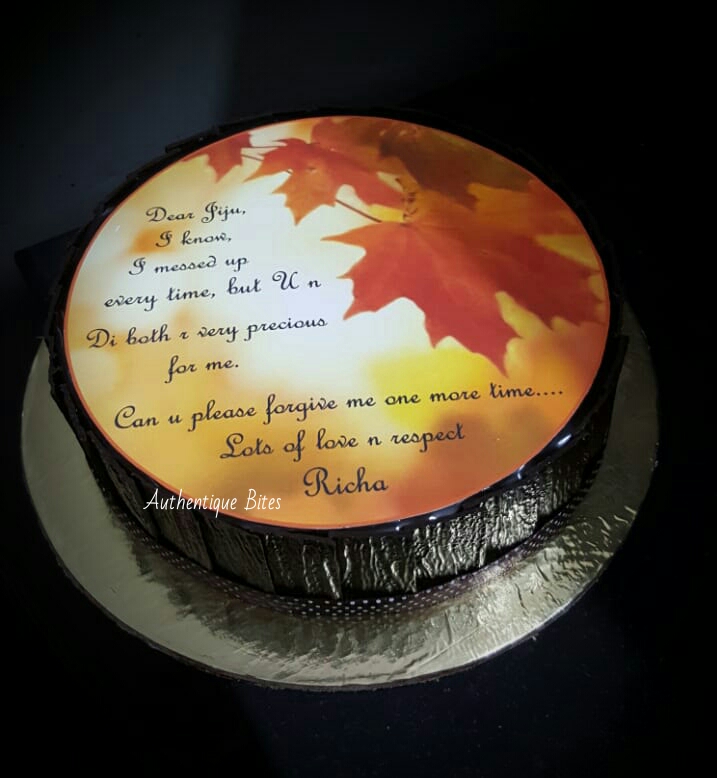 Dear Jiju,
I know,
I messed up
every time, but U n
Di both r very precious
for me.
Can u please forgive me one more time....
Lots of love n respect
Richa
Authentique Bites